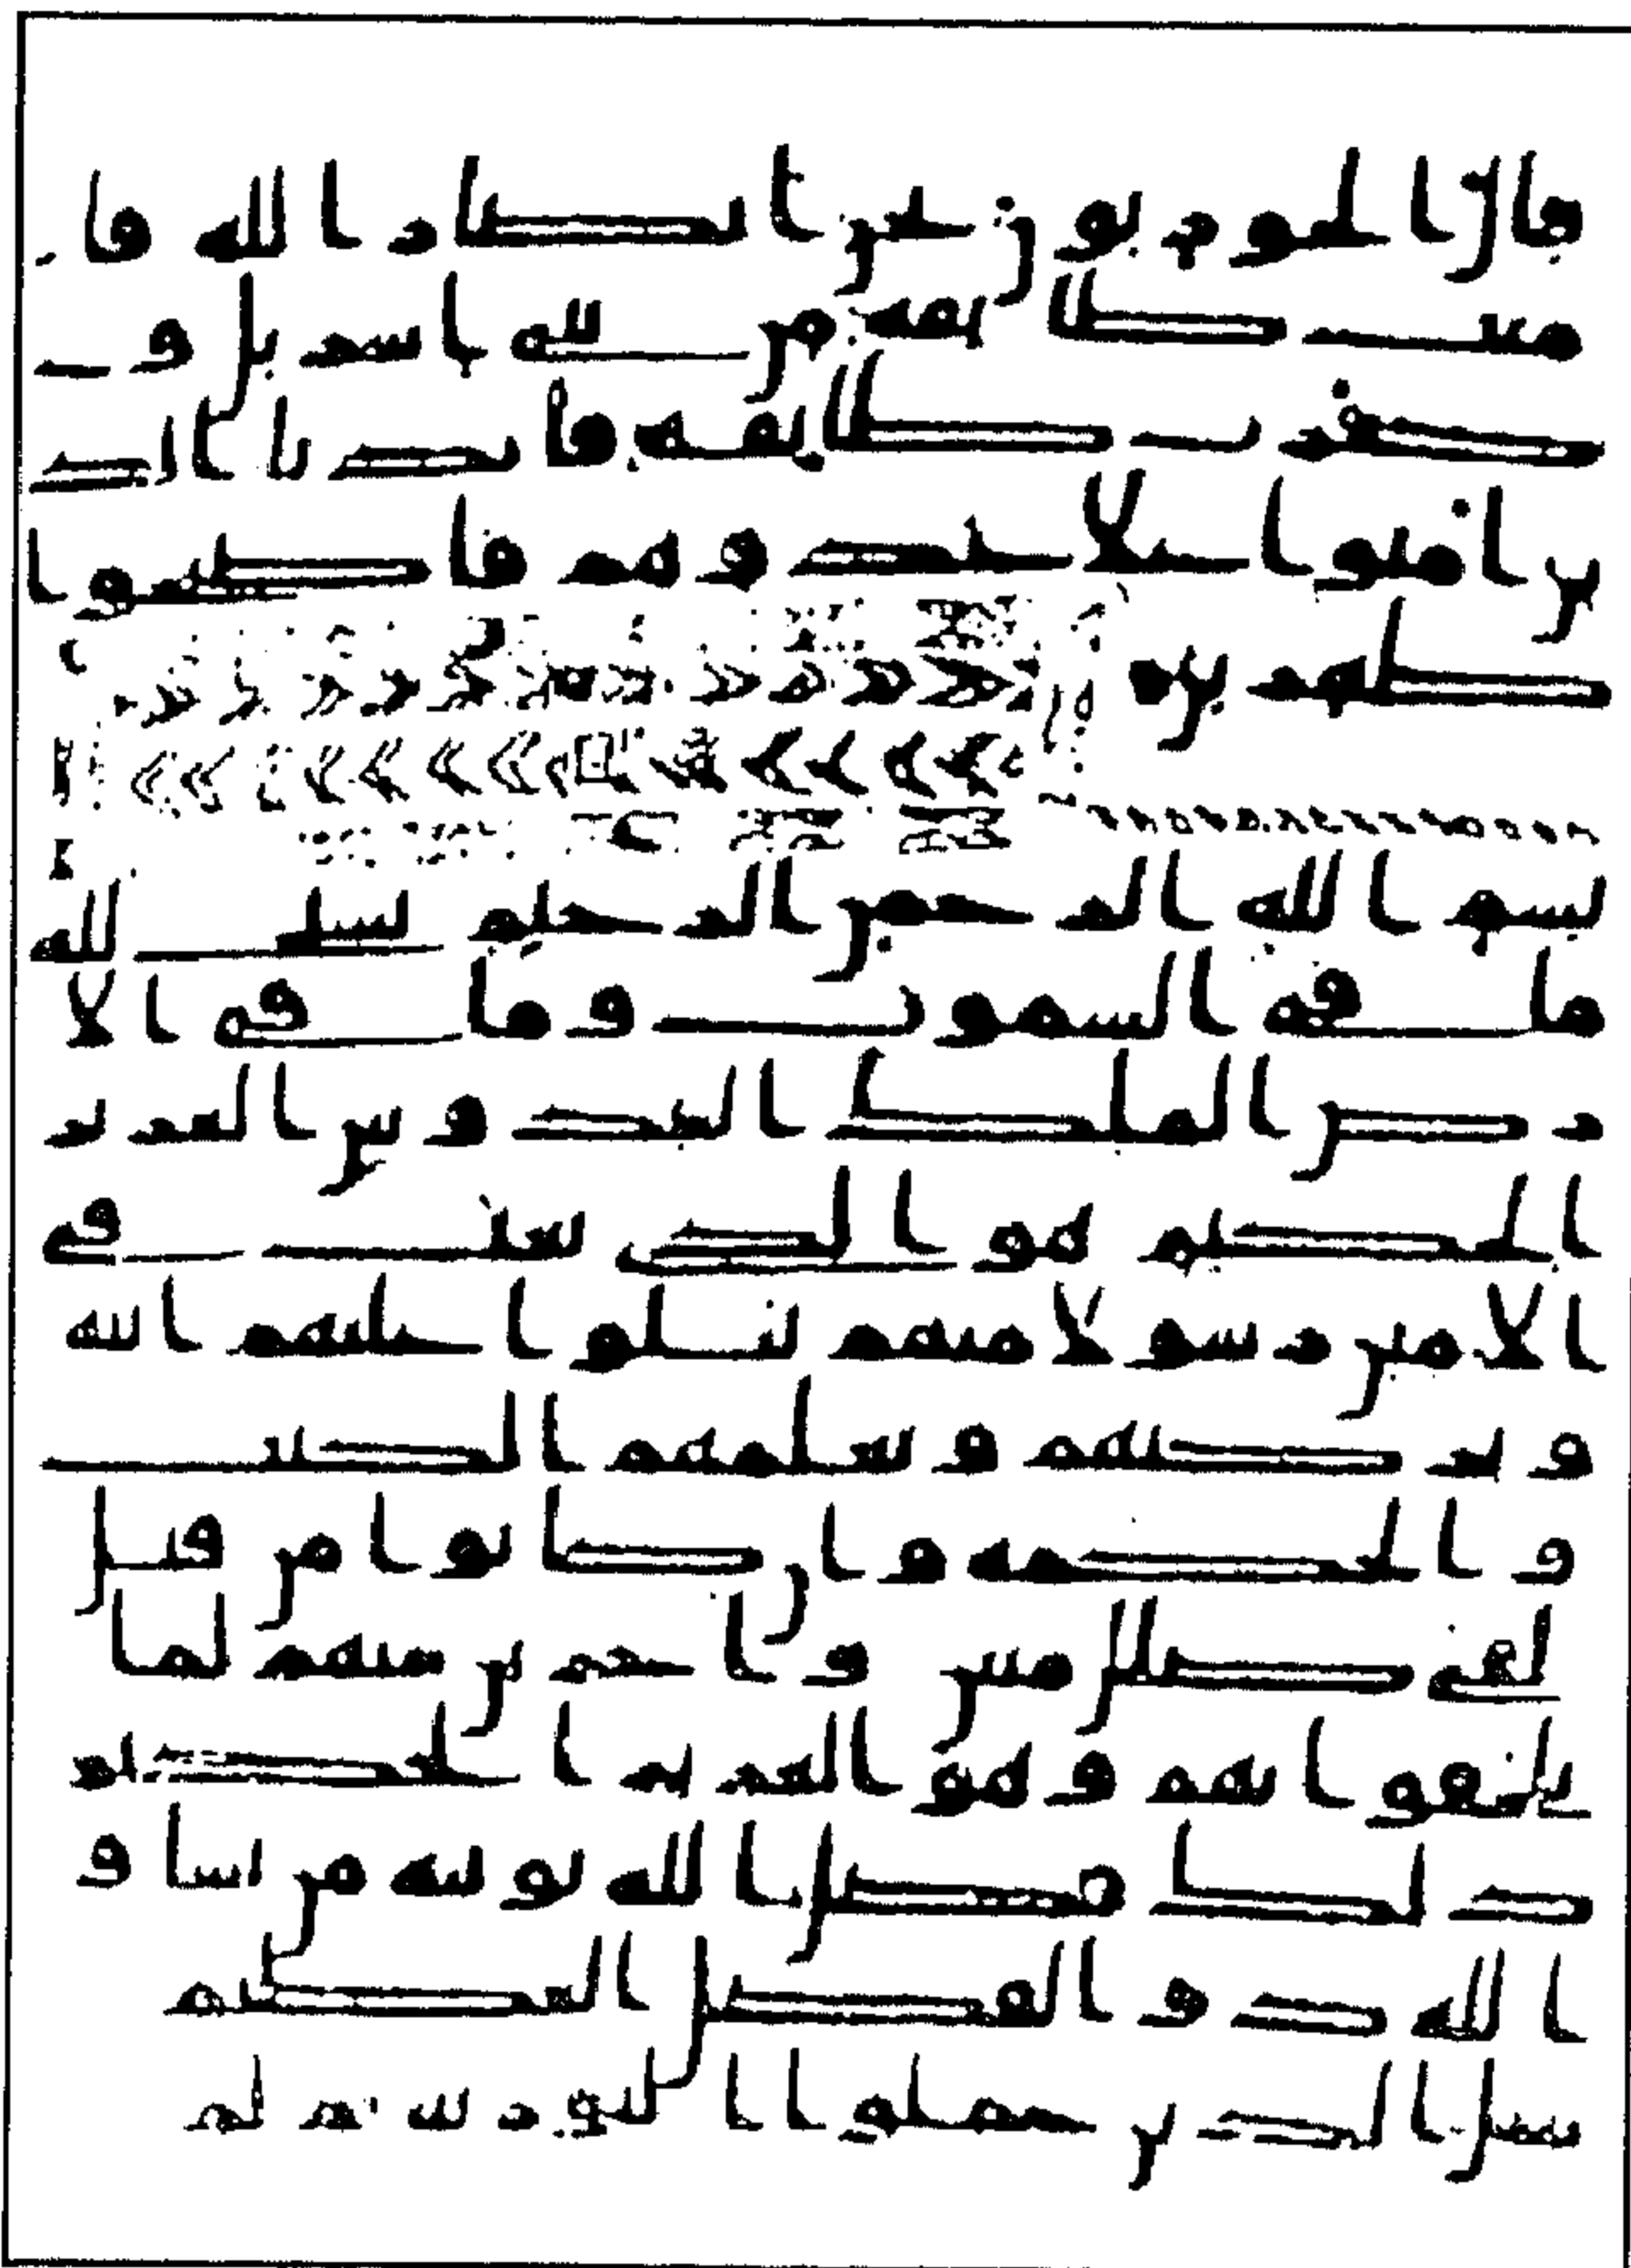 قال الحواريون نحن انصار الله فا
منت طائفة من بني اسرئيل و
كفرت طائفة فايدنا الذ
ين امنوا على عدوهم فاصبحوا
ظهرين
بسم الله الرحمن الرحيم يسبح لله
ما في السموت وما في الا
رض الملك القدوس العزيز
الحكيم هو الذي بعث في
الامين رسولا منهم يتلوا عليهم ايته
ويزكيهم ويعلمهم الكتب
والحكمة وان كانوا من قبل
لفي ضلل مبين واخرين منهم لما
يلحقوا بهم وهو العزيز الحكيم
ذلك فضل الله يوتيه من يشا و
الله ذو الفضل العظيم
مثل الذين حملوا التورية ثم لم